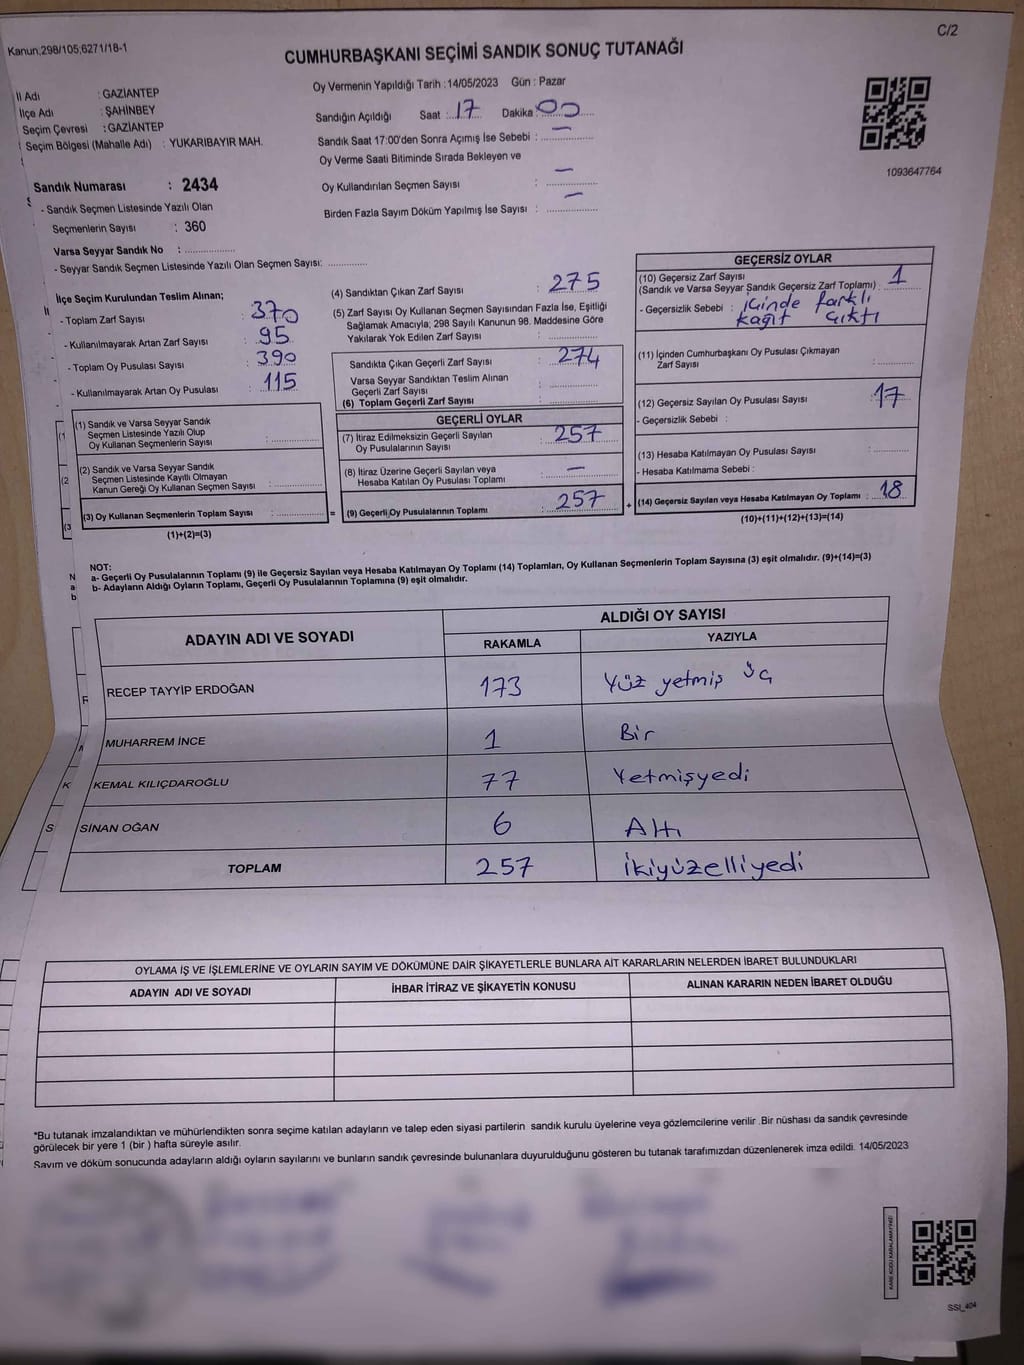 Kanun;298/105;6271/18-1
C/2
CUMHURBAŞKANI SEÇİMİ SANDIK SONUÇ TUTANAĞI
İl Adı : GAZİANTEP
İlçe Adı : ŞAHİNBEY
Seçim Çevresi : GAZİANTEP
Seçim Bölgesi (Mahalle Adı) : YUKARIBAYIR MAH.
Sandık Numarası : 2434
- Sandık Seçmen Listesinde Yazılı Olan
Seçmenlerin Sayısı : 360
Varsa Seyyar Sandık No : ................
- Seyyar Sandık Seçmen Listesinde Yazılı Olan Seçmen Sayısı: ............
Oy Vermenin Yapıldığı Tarih :14/05/2023 Gün : Pazar
Sandığın Açıldığı Saat : 17 Dakika : 00
Sandık Saat 17:00'den Sonra Açımış İse Sebebi : —
Oy Verme Saati Bitiminde Sırada Bekleyen ve
Oy Kullandırılan Seçmen Sayısı : —
Birden Fazla Sayım Döküm Yapılmış İse Sayısı : —
1093647764
İlçe Seçim Kurulundan Teslim Alınan;
- Toplam Zarf Sayısı : 370
- Kullanılmayarak Artan Zarf Sayısı : 95
- Toplam Oy Pusulası Sayısı : 390
- Kullanılmayarak Artan Oy Pusulası : 115
(1) Sandık ve Varsa Seyyar Sandık
Seçmen Listesinde Yazılı Olup
Oy Kullanan Seçmenlerin Sayısı : ............
(2) Sandık ve Varsa Seyyar Sandık
Seçmen Listesinde Kayıtlı Olmayan
Kanun Gereği Oy Kullanan Seçmen Sayısı : ............
(3) Oy Kullanan Seçmenlerin Toplam Sayısı : ............
(1)+(2)=(3)
=
(4) Sandıktan Çıkan Zarf Sayısı : 275
(5) Zarf Sayısı Oy Kullanan Seçmen Sayısından Fazla İse, Eşitliği
Sağlamak Amacıyla; 298 Sayılı Kanunun 98. Maddesine Göre
Yakılarak Yok Edilen Zarf Sayısı : ............
Sandıkta Çıkan Geçerli Zarf Sayısı : 274
Varsa Seyyar Sandıktan Teslim Alınan
Geçerli Zarf Sayısı : ............
(6) Toplam Geçerli Zarf Sayısı : ............
GEÇERLİ OYLAR
(7) İtiraz Edilmeksizin Geçerli Sayılan
Oy Pusulalarının Sayısı : 257
(8) İtiraz Üzerine Geçerli Sayılan veya
Hesaba Katılan Oy Pusulası Toplamı : —
(9) Geçerli Oy Pusulalarının Toplamı : 257
+
GEÇERSİZ OYLAR
(10) Geçersiz Zarf Sayısı
(Sandık ve Varsa Seyyar Sandık Geçersiz Zarf Toplamı) : 1
- Geçersizlik Sebebi : içinde farklı
kağıt çıktı
(11) İçinden Cumhurbaşkanı Oy Pusulası Çıkmayan
Zarf Sayısı : ............
(12) Geçersiz Sayılan Oy Pusulası Sayısı : 17
- Geçersizlik Sebebi :
(13) Hesaba Katılmayan Oy Pusulası Sayısı : ............
- Hesaba Katılmama Sebebi :
(14) Geçersiz Sayılan veya Hesaba Katılmayan Oy Toplamı : 18
(10)+(11)+(12)+(13)=(14)
NOT:
a- Geçerli Oy Pusulalarının Toplamı (9) ile Geçersiz Sayılan veya Hesaba Katılmayan Oy Toplamı (14) Toplamları, Oy Kullanan Seçmenlerin Toplam Sayısına (3) eşit olmalıdır. (9)+(14)=(3)
b- Adayların Aldığı Oyların Toplamı, Geçerli Oy Pusulalarının Toplamına (9) eşit olmalıdır.
ADAYIN ADI VE SOYADI
ALDIĞI OY SAYISI
RAKAMLA YAZIYLA
RECEP TAYYİP ERDOĞAN 173 Yüz yetmiş üç
MUHARREM İNCE 1 Bir
KEMAL KILIÇDAROĞLU 77 Yetmişyedi
SİNAN OĞAN 6 Altı
TOPLAM 257 ikiyüzelliyedi
OYLAMA İŞ VE İŞLEMLERİNE VE OYLARIN SAYIM VE DÖKÜMÜNE DAİR ŞİKAYETLERLE BUNLARA AİT KARARLARIN NELERDEN İBARET BULUNDUKLARI
ADAYIN ADI VE SOYADI İHBAR İTİRAZ VE ŞİKAYETİN KONUSU ALINAN KARARIN NEDEN İBARET OLDUĞU
*Bu tutanak imzalandıktan ve mühürlendikten sonra seçime katılan adayların ve talep eden siyasi partilerin sandık kurulu üyelerine veya gözlemcilerine verilir .Bir nüshası da sandık çevresinde
görülecek bir yere 1 (bir ) hafta süreyle asılır.
Sayım ve döküm sonucunda adayların aldığı oyların sayılarını ve bunların sandık çevresinde bulunanlara duyurulduğunu gösteren bu tutanak tarafımızdan düzenlenerek imza edildi. 14/05/2023
KARE KODU KARALAMAYINIZ!
SSI_404